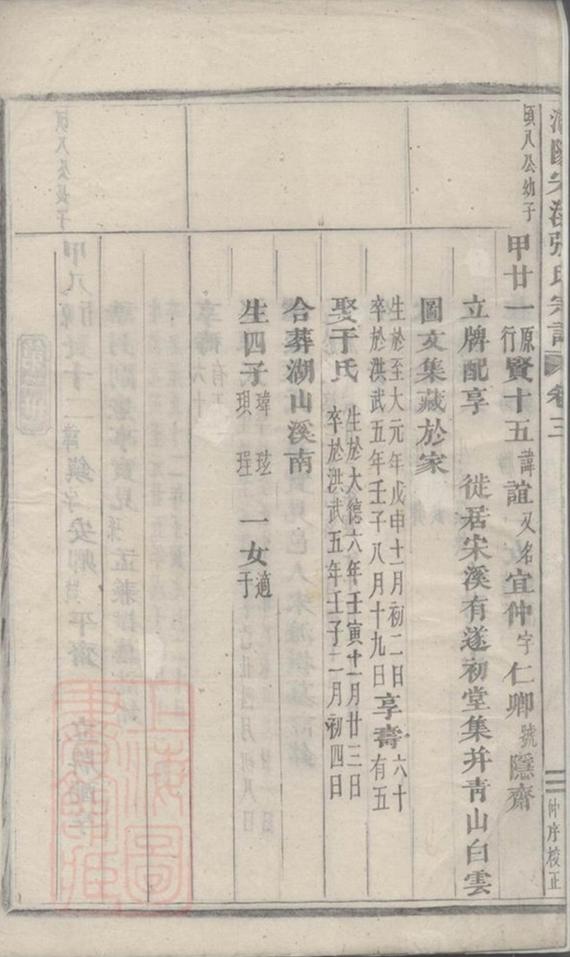 浦陽宋溪張氏宗譜 卷三 三 仲序校正
頃八公幼子
甲廿一原行賢十五諱誼又名宜仲字仁卿號隱齋
立牌配享 徙居宋溪有遂初堂集并青山白雲
圖文集藏於家
生於至大元年戊申十一月初二日享壽六十
卒於洪武五年壬子八月十九日 有五
娶于氏 生於大德六年壬寅十一月廿三日
卒於洪武五年壬子二月初四日
合葬湖山溪南
生四子 瑋 玹 一女適
珼 瑆 于
上海圖書館藏